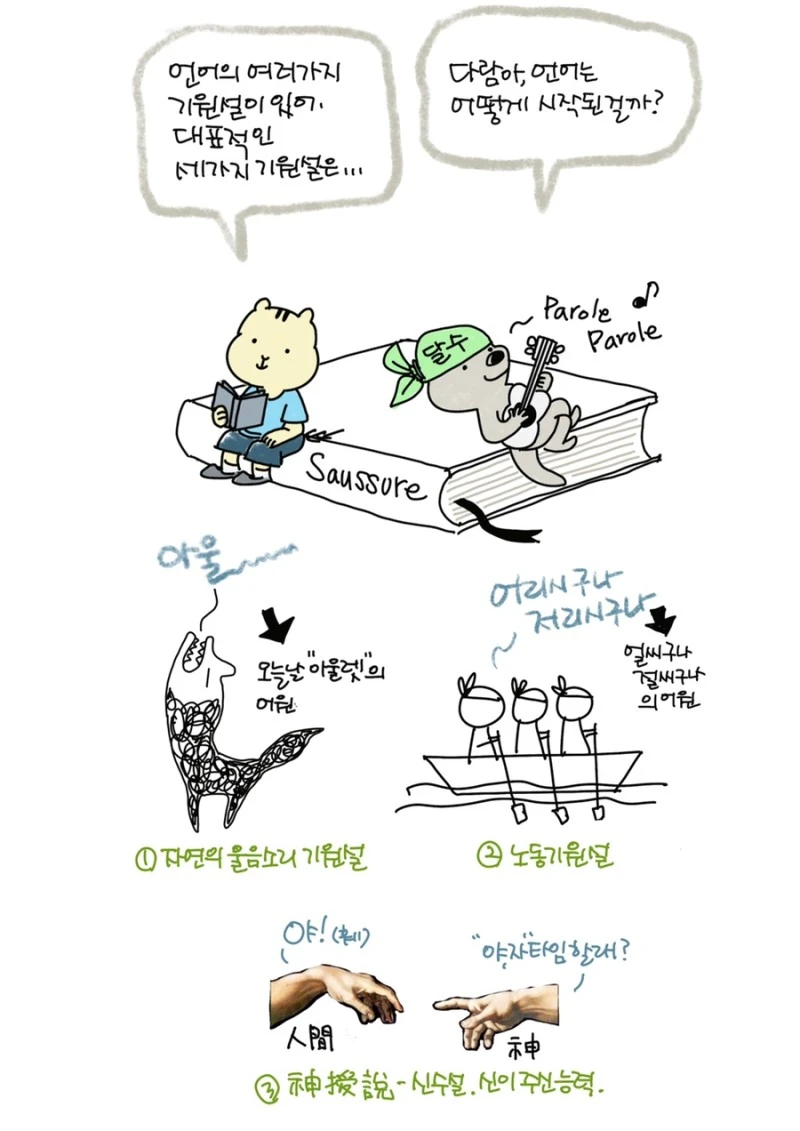 다람아, 언어는
어떻게 시작된걸까?
언어의 여러가지
기원설이 있어.
대표적인
세가지 기원설은...
달수
Parole
Parole
Saussure
아울
오늘날 "아울렛"의
어원
① 자연의 울음소리 기원설
어리시구나
저리시구나
얼씨구나
절씨구나
의 어원
② 노동기원설
야!
人間
"야,자"타임할래?
神
③ 神授說 - 신수설. 신이 주신 능력.